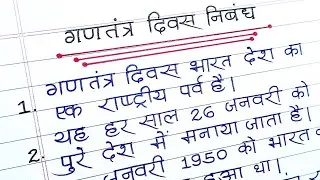 गणतंत्र दिवस निबंध
1. गणतंत्र दिवस भारत देश का
एक राष्ट्रीय पर्व है।
2. यह हर साल 26 जनवरी को
पुरे देश में मनाया जाता है।
जनवरी 1950 को भारत
था।